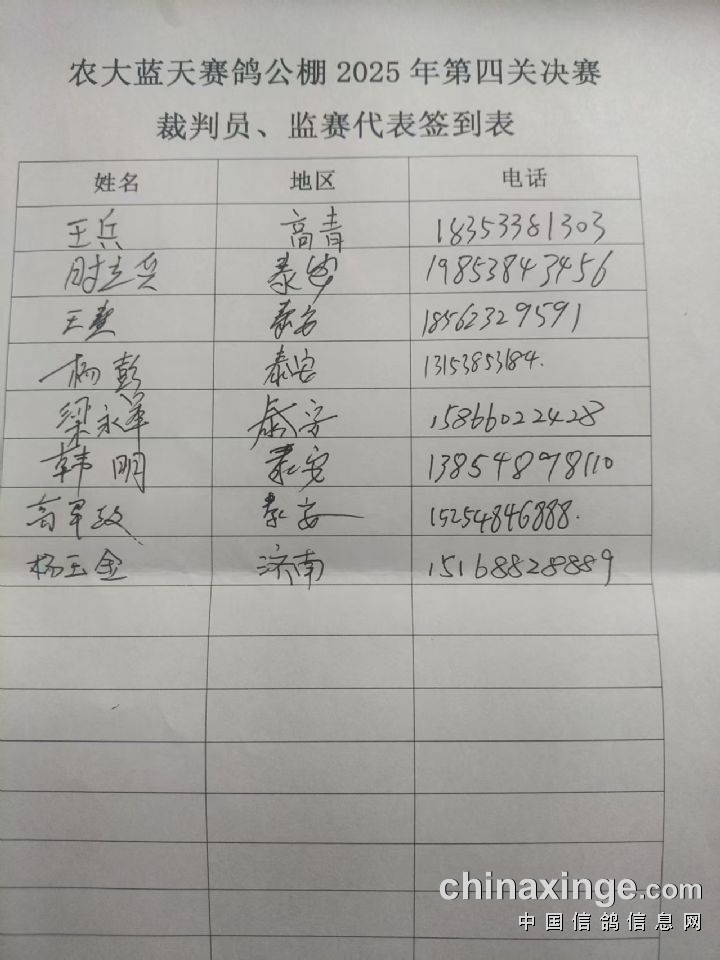 农大蓝天赛鸽公棚 2025 年第四关决赛
裁判员、监赛代表签到表
姓名 地区 电话
王兵 高青 18353381303
时立兵 泰安 19853843456
王 泰安 18562329591
杨彭 泰安 13153853184.
梁永军 泰安 15866022428
韩明 泰安 13854898110
高军政 泰安 15254846888.
杨玉金 济南 15168828889
chinaxinge.com
中国信鸽信息网